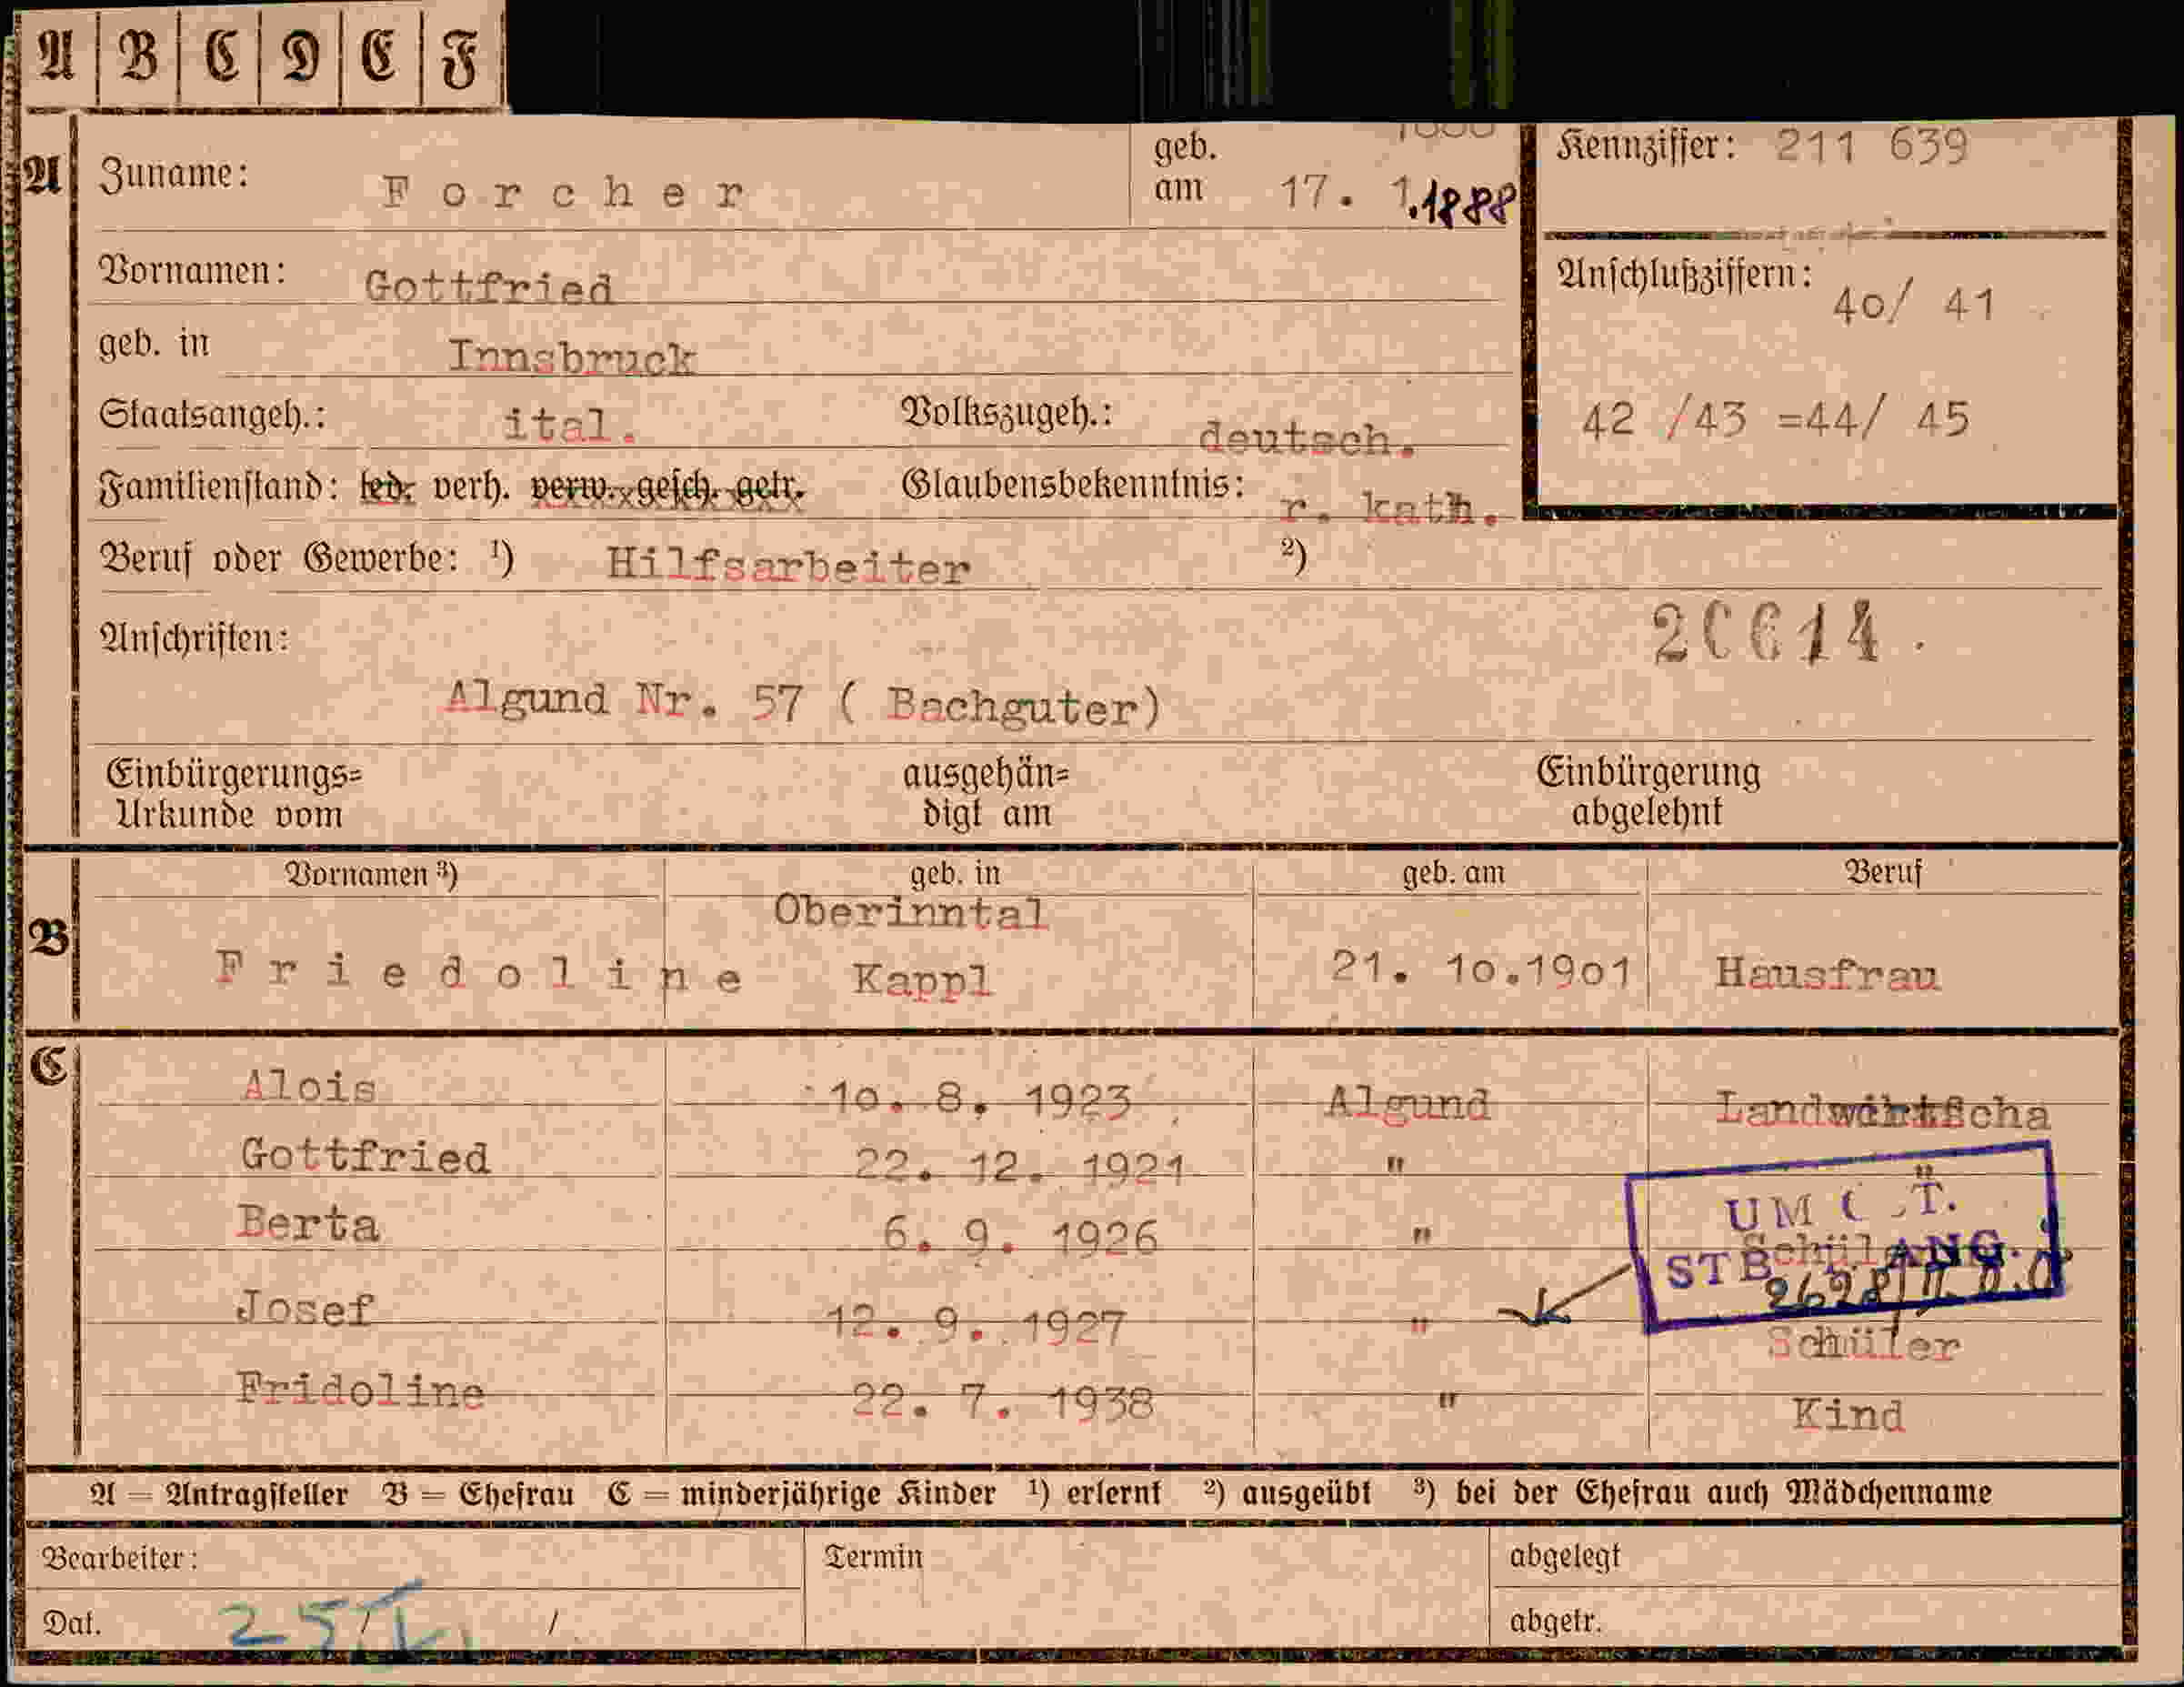 A B C D E F
A Zuname: Forcher geb. am 17. 1.1888 Kennziffer: 211 639
Vornamen: Gottfried Anschlußziffern: 40/ 41
geb. in Innsbruck
Staatsangeh.: ital. Volkszugeh.: deutsch. 42 /43 =44/ 45
Familienstand: led. verh. verw. gesch. getr. Glaubensbekenntnis: r. kath.
Beruf oder Gewerbe: ¹) Hilfsarbeiter ²)
Anschriften: 20614.
Algund Nr. 57 ( Bachguter)
Einbürgerungs= ausgehän= Einbürgerung
Urkunde vom digt am abgelehnt
Vornamen ³) geb. in geb. am Beruf
Oberinntal
B Friedoline Kappl 21. 10.1901 Hausfrau
C Alois 10. 8. 1923 Algund
Gottfried 22. 12. 1921 " "
Berta 6. 9. 1926 "
Josef 12. 9. 1927 " Schüler
Fridoline 22. 7. 1938 " Kind
A = Antragsteller B = Ehefrau C = minderjährige Kinder ¹) erlernt ²) ausgeübt ³) bei der Ehefrau auch Mädchenname
Bearbeiter: Termin abgelegt
Dat. 25/ / abgetr.